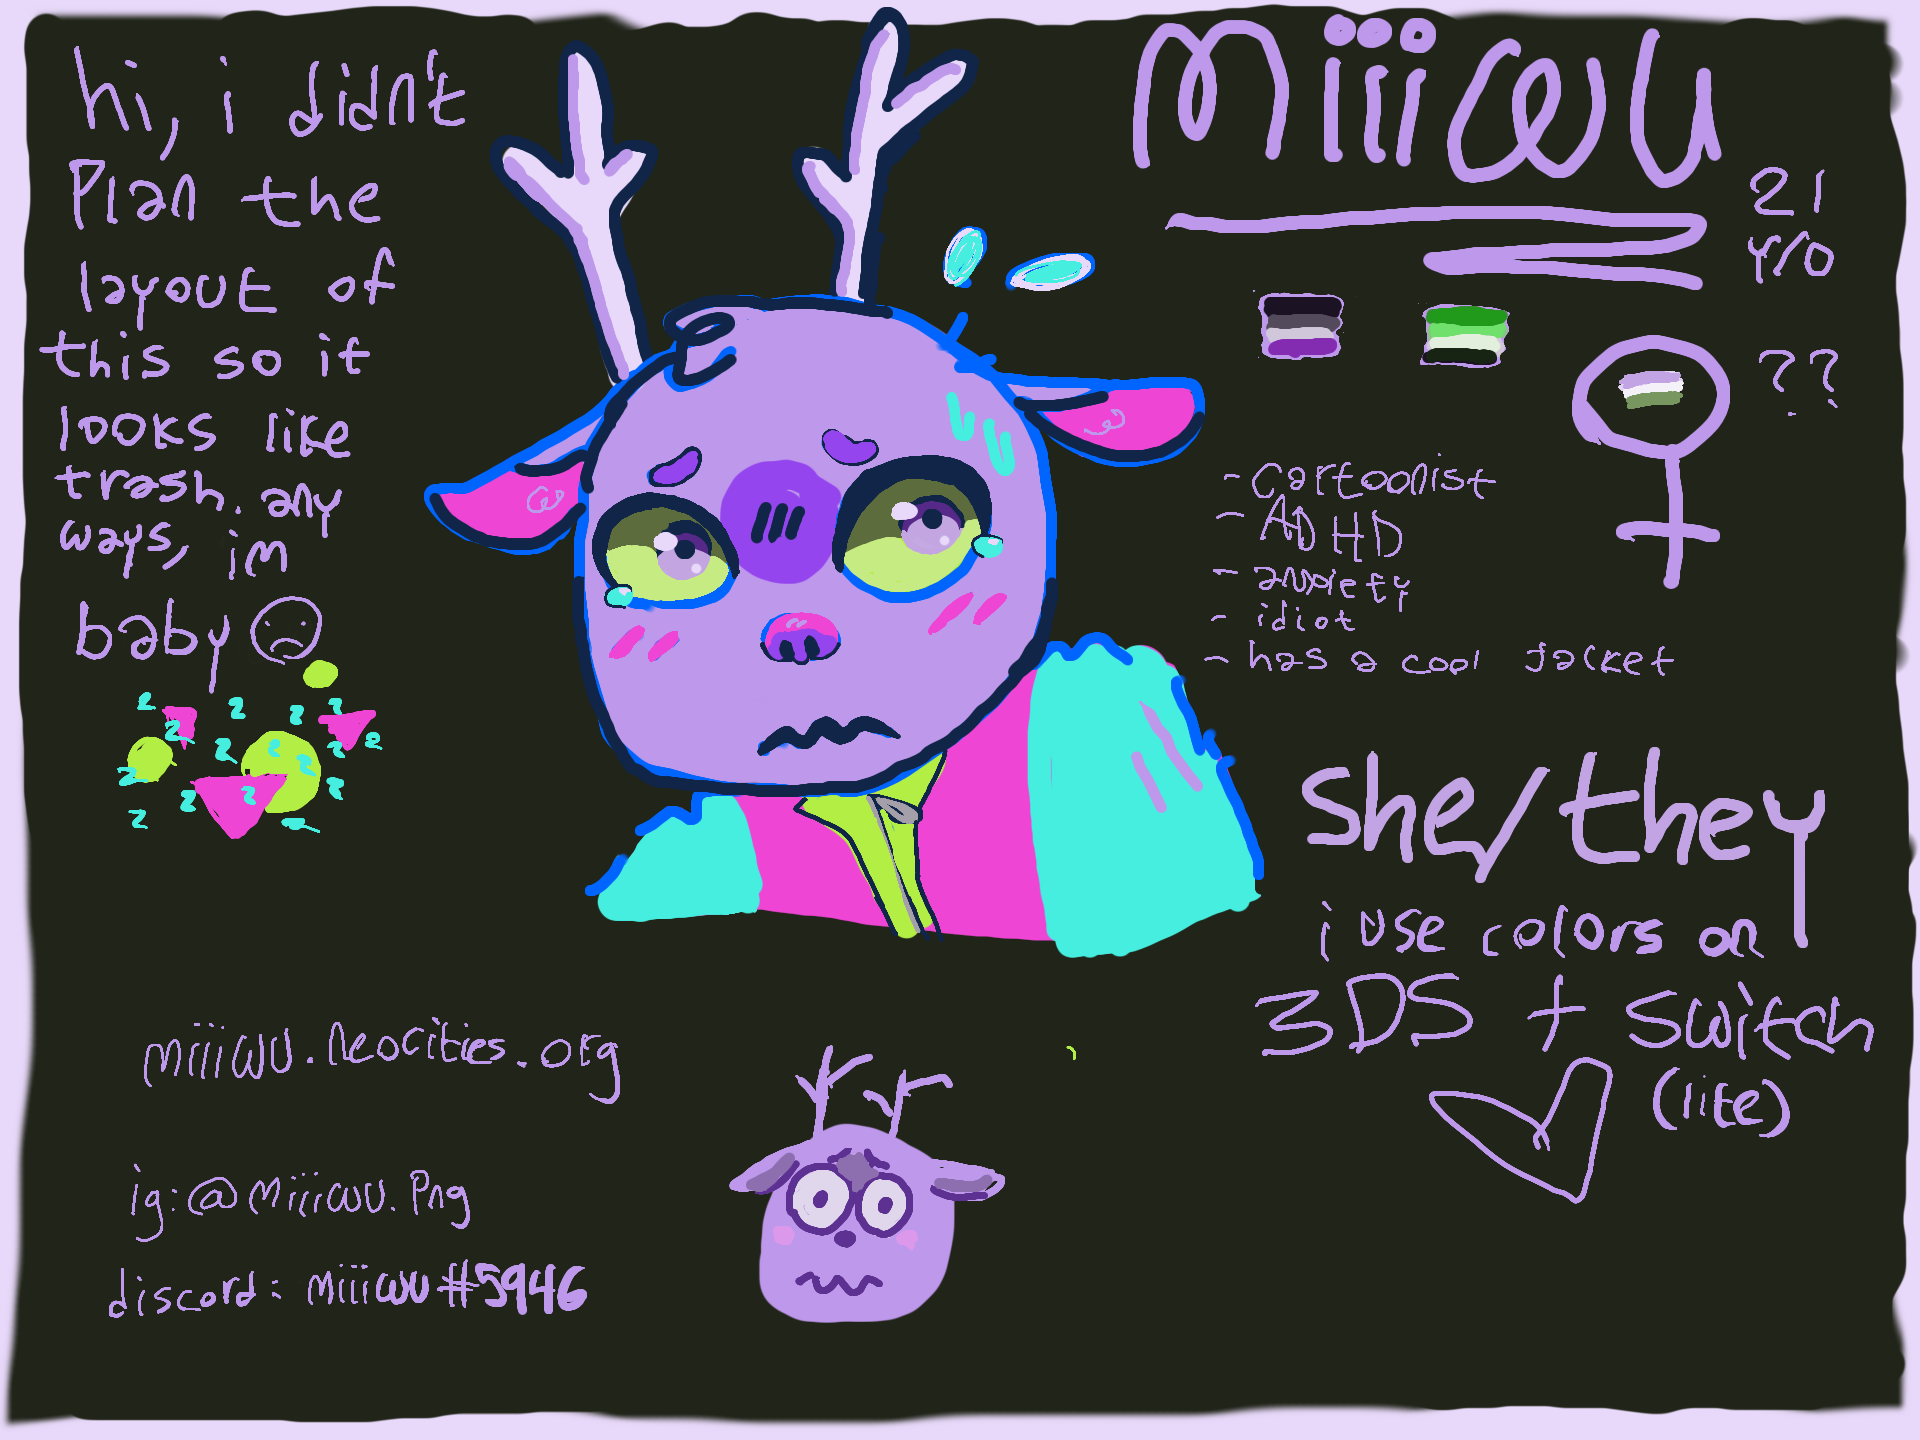 hi, i didn't
Plan the
layout of
this so it
looks like
trash. any
ways, im
baby
miiiwu
21
y/o
??
- cartoonist
- ADHD
- anxiety
- idiot
- has a cool jacket
she/they
i use colors on
3DS + switch
(lite)
miiiwu.neocities.org
ig:@miiiwu.png
discord: miiiwu#5946